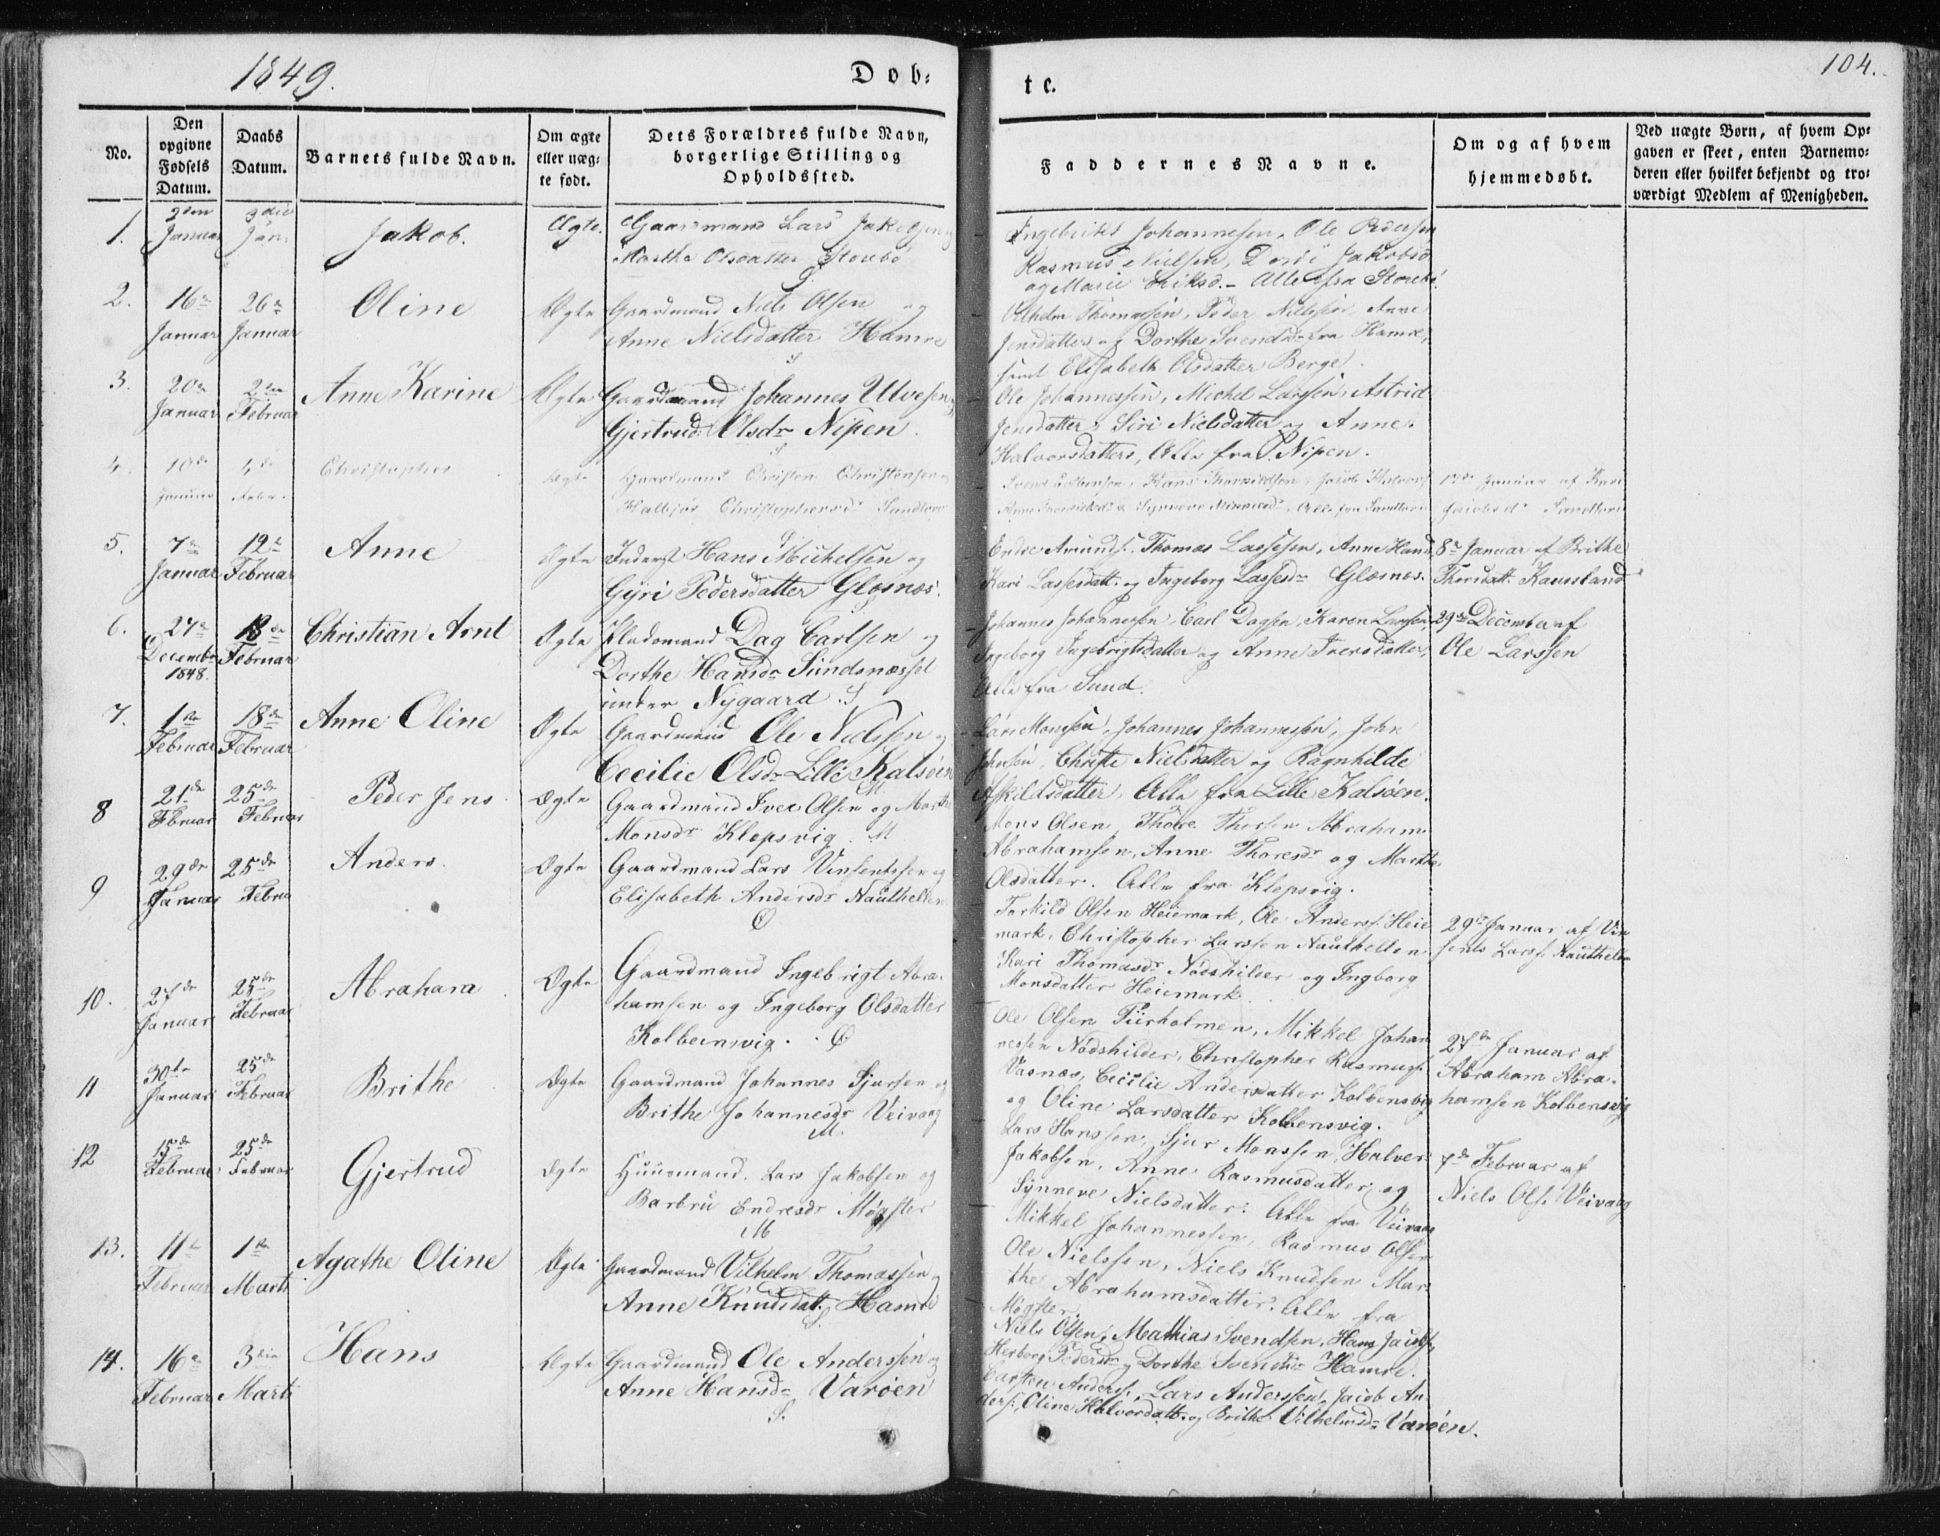 1849.
Dob:
te.
104.
No.
Den opgivne Fødsels Datum.
Daabs Datum.
Barnets fulde Navn.
Om ægte eller uæg: te født.
Dets Forældres fulde Navn, borgerlige Stilling og Opholdssted.
Faddernes Navne.
Om og af hvem hjemmedøbt.
Ved uægte Børn, af hvem Op: gaven er skeet, enten Barnemo: deren eller hvilket bekjendt og tro: værdigt Medlem af Menigheden.
1.
Januar
Jan:
Jakob.
Ægte.
Gaardmand Lars Jakobsen
Marthe Olsdatter
Johannesen, Ole Pedersen
Rasmus Nielsen, Jakobsd
og Marie Eriksd. - Alle fra
2.
16
Januar
26
Januar
Oline
Ægte
Gaardmand Niels Olsen og
Anne Nielsdatter Hamre
Vilhelm Thomassen, Peder Nielssen Anne
Jensdatter og Dorthe Svendsd fra Hamre,
samt Elisabeth Olsdatter Berge.
3.
20
Januar
2
Februar
Anne Karine
Ægte
Gaardmand Johannes Utvesen
Gjertrud Olsdr Nipen.
Ole Johannessen, Michel Larsen, Astrid
Jensdatter, Siri Nielsdatter og Anne
Halvorsdatter, Alle fra Nipen.
4.
10
Januar
4
Christopher
Ægte
Gaardmand Christen Christensen
Christophersd
Januar af Kari
Jacobsd
5.
7
Januar
12
Februar
Anne
Ægte
Inderst Hans Mickelsen og
Gyri Pedersdatter Glesnæs.
Endre Amunds. Thomas Lassesen, Anne Hansd
Kari Lassesdatt. og Ingeborg Lassesdr Glesnes.
8 Januar af Brithe
Thorsdatt. Kausland
6.
27
Decembr
1848.
18
Februar
Christian Arnt
Ægte
Pladsmand Dag Carlsen og
Dorthe Hansdr Sundsnæsset
under Nygaard. S
Johannes Johannessen Carl Dagsen, Karen
Ingeborg Ingebrigtsdatter og Anne Iversdatter,
Alle fra Sund.
29 December af
Ole Larssen
7.
1
Februar
18
Februar
Anne Oline
Ægte
Gaardmand Ole Nielssen
Cecilie Olsdr Lille Kalsøen
Monssen, Johannes Johannessen, John
Johnsen, Christe Nielsdatter og Ragnhilde
Askildsdatter, Alle fra Lille Kalsøen.
8
21de
Februar
25de
Februar
Peder Jens
Ægte
Gaardmand Iver Olsen og Marthe
Monsdr Klepsvig. M
Mons Olsen, Thore Thorsen Abraham
Abrahamsen, Anne Thoresdr og Marthe
Olsdatter. Alle fra Klepsvig.
9
29de
Januar
25de
Februar
Anders.
Ægte
Gaardmand Lars Vinsentssen og
Elisabeth Andersdr Nauthellen
Torkild Olsen Heiemark, Ole Anders. Heie
mark, Christopher Larssen Nauthellen
Kari Thomasdr Nødshilder og Ingborg
Monsdatter Heiemark.
29de Januar af Vin
sents Larss. Nauthellen
10.
27de
Januar
25de
Februar
Abraham
Ægte
Gaardmand Ingebrigt Abra:
hamsen og Ingeborg Olsdatter
Kolbeinsvig.
Ole Olsen Tiirholmen, Mikkel Johan
nessen Nødshilder, Christopher Rasmus.
Vasnæs, Cecilie Andersdatter Kolbensvig
og Oline Larsdatter Kolbensvig.
27de Januar af
Abraham Abra:
hamsen Kolbensvig
11
30te
Januar
25de
Februar
Brithe
Ægte
Gaardmand Johannes Sjursen og
Brithe Johannesdr Veivaag
M.
Lars Hanssen, Sjur Monssen, Halver
Jakobsen, Anne Rasmusdatter og
Synneve Nielsdatter. Alle fra Veivaag
7de Februar af
Niels Ols. Veivaag
12
15de
Februar
25de
Februar
Gjertrud
Ægte
Huusmand. Lars Jakobsen og
Barbru Endresdr Møgster
M
Mikkel Johannessen, Rasmus Olsen
Ole Nielssen, Niels Knudsen Mar:
the Abrahamsdatter. Alle fra
Møgster
13.
11
Februar
1ste
Marti
Agathe Oline
Ægte
Gaardmand Vilhelm Thomassen og
Anne Knudsdatt. Hamre
Niels Olsen, Mathias Svendsen, Hans
Herborg Pedersdr og Dorthe Svendsdr Hamre.
14.
16
Februar
3die
Marti
Hans
Ægte
Gaardmand Ole Anderssen og
Anne Hansdr Varøen
S.
Carsten Anders., Lars Anderssen, Jacob An
ders., Oline Halvorsdatt. og Brithe Vilhelmsdr Varøen.